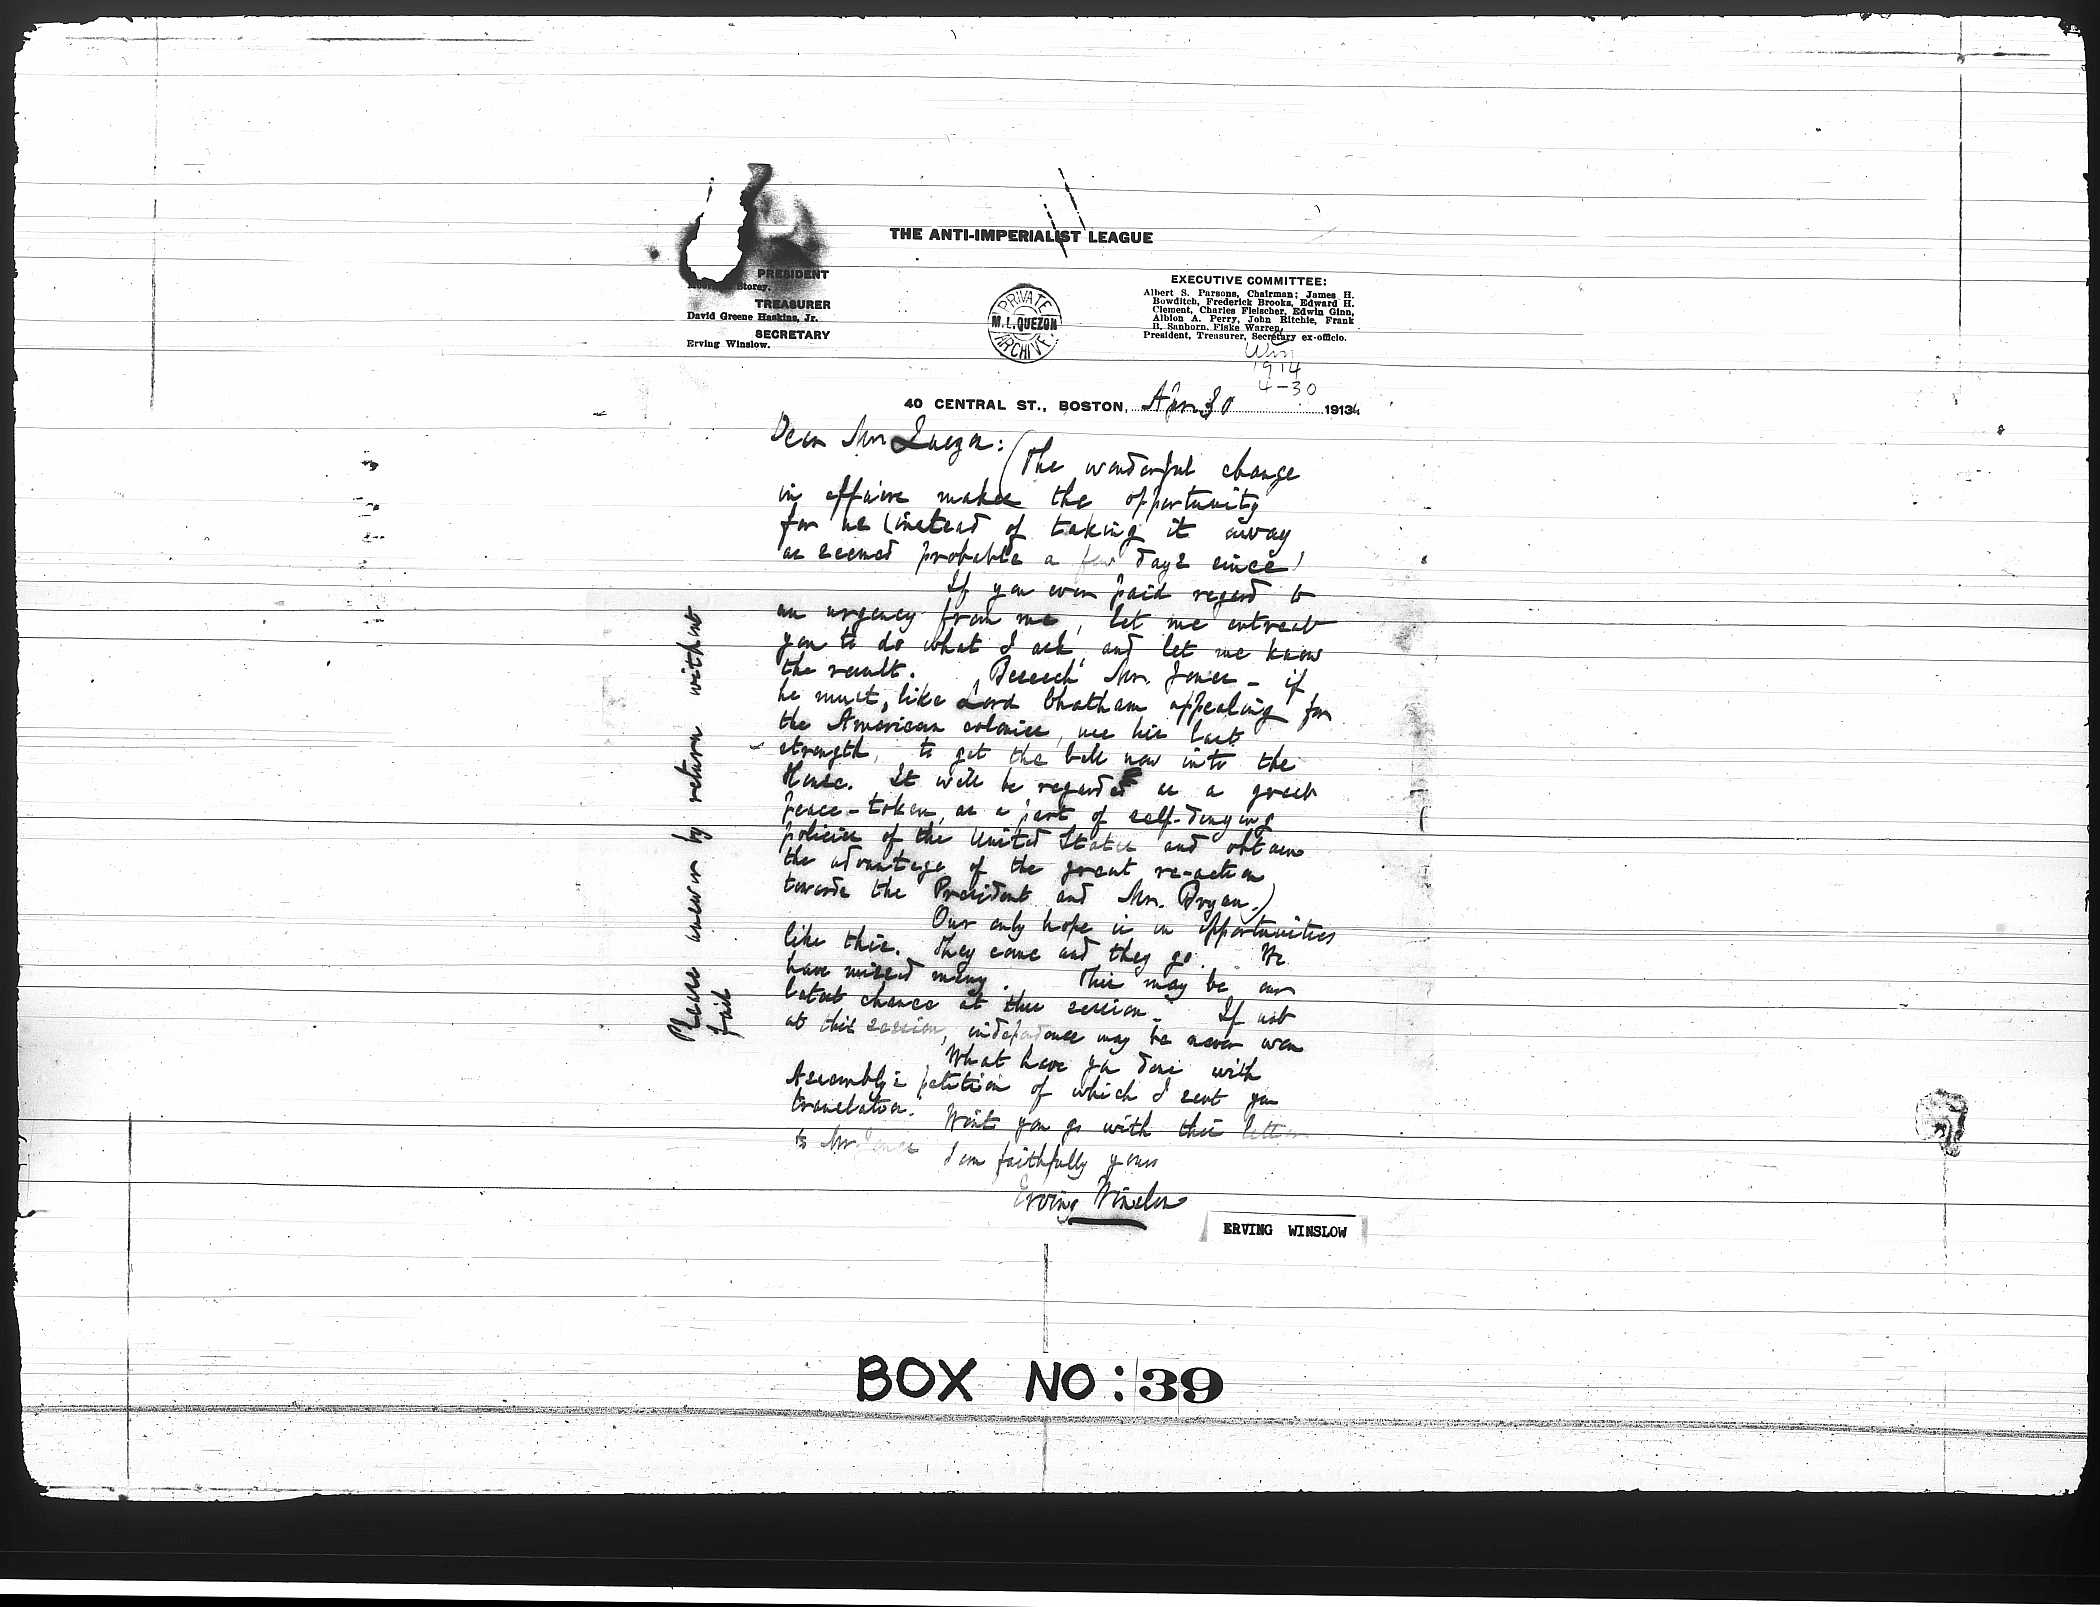 THE ANTI-IMPERIALIST LEAGUE
PRESIDENT
Storey.
TREASURER
David Greene Haskins, Jr.
SECRETARY
Erving Winslow.
PRIVATE
M. L. QUEZON
ARCHIVE
EXECUTIVE COMMITTEE:
Albert S. Parsons, Chairman; James H.
Bowditch, Frederick Brooks, Edward H.
Clement, Charles Fleischer, Edwin Ginn,
Albion A. Perry, John Ritchie, Frank
B. Sanborn, Fiske Warren,
President, Treasurer, Secretary ex-officio.
Win
1914
4-30
40 CENTRAL ST., BOSTON, Apr. 30 1914
Dear Mr Quezon: (The wonderful change
in affairs makes the opportunity
for us (instead of taking it away
as seemed probable a few days since)
If you ever paid regard to
an urgency from me, let me entreat
you to do what I ask, and let me know
the result. Beseech Mr. Jones - if
he must, like Lord Chatham appealing for
the American colonies, use his last
strength, to get the bill now into the
House. It will be regarded as a great
peace-token, as a part of self-denying
policies of the United States and obtain
the advantage of the great re-action
towards the President and Mr. Bryan.)
Our only hope is in opportunities
like this. They come and they go. We
have missed many. This may be our
latest chance at this session. If not
at this session, independence may be never won
What have you done with
Assembly's petition of which I sent you
translation. Wont you go with this letter
to Mr Jones
I am faithfully yours
Erving Winslow
ERVING WINSLOW
Please answer by return without
fail
BOX NO: 39